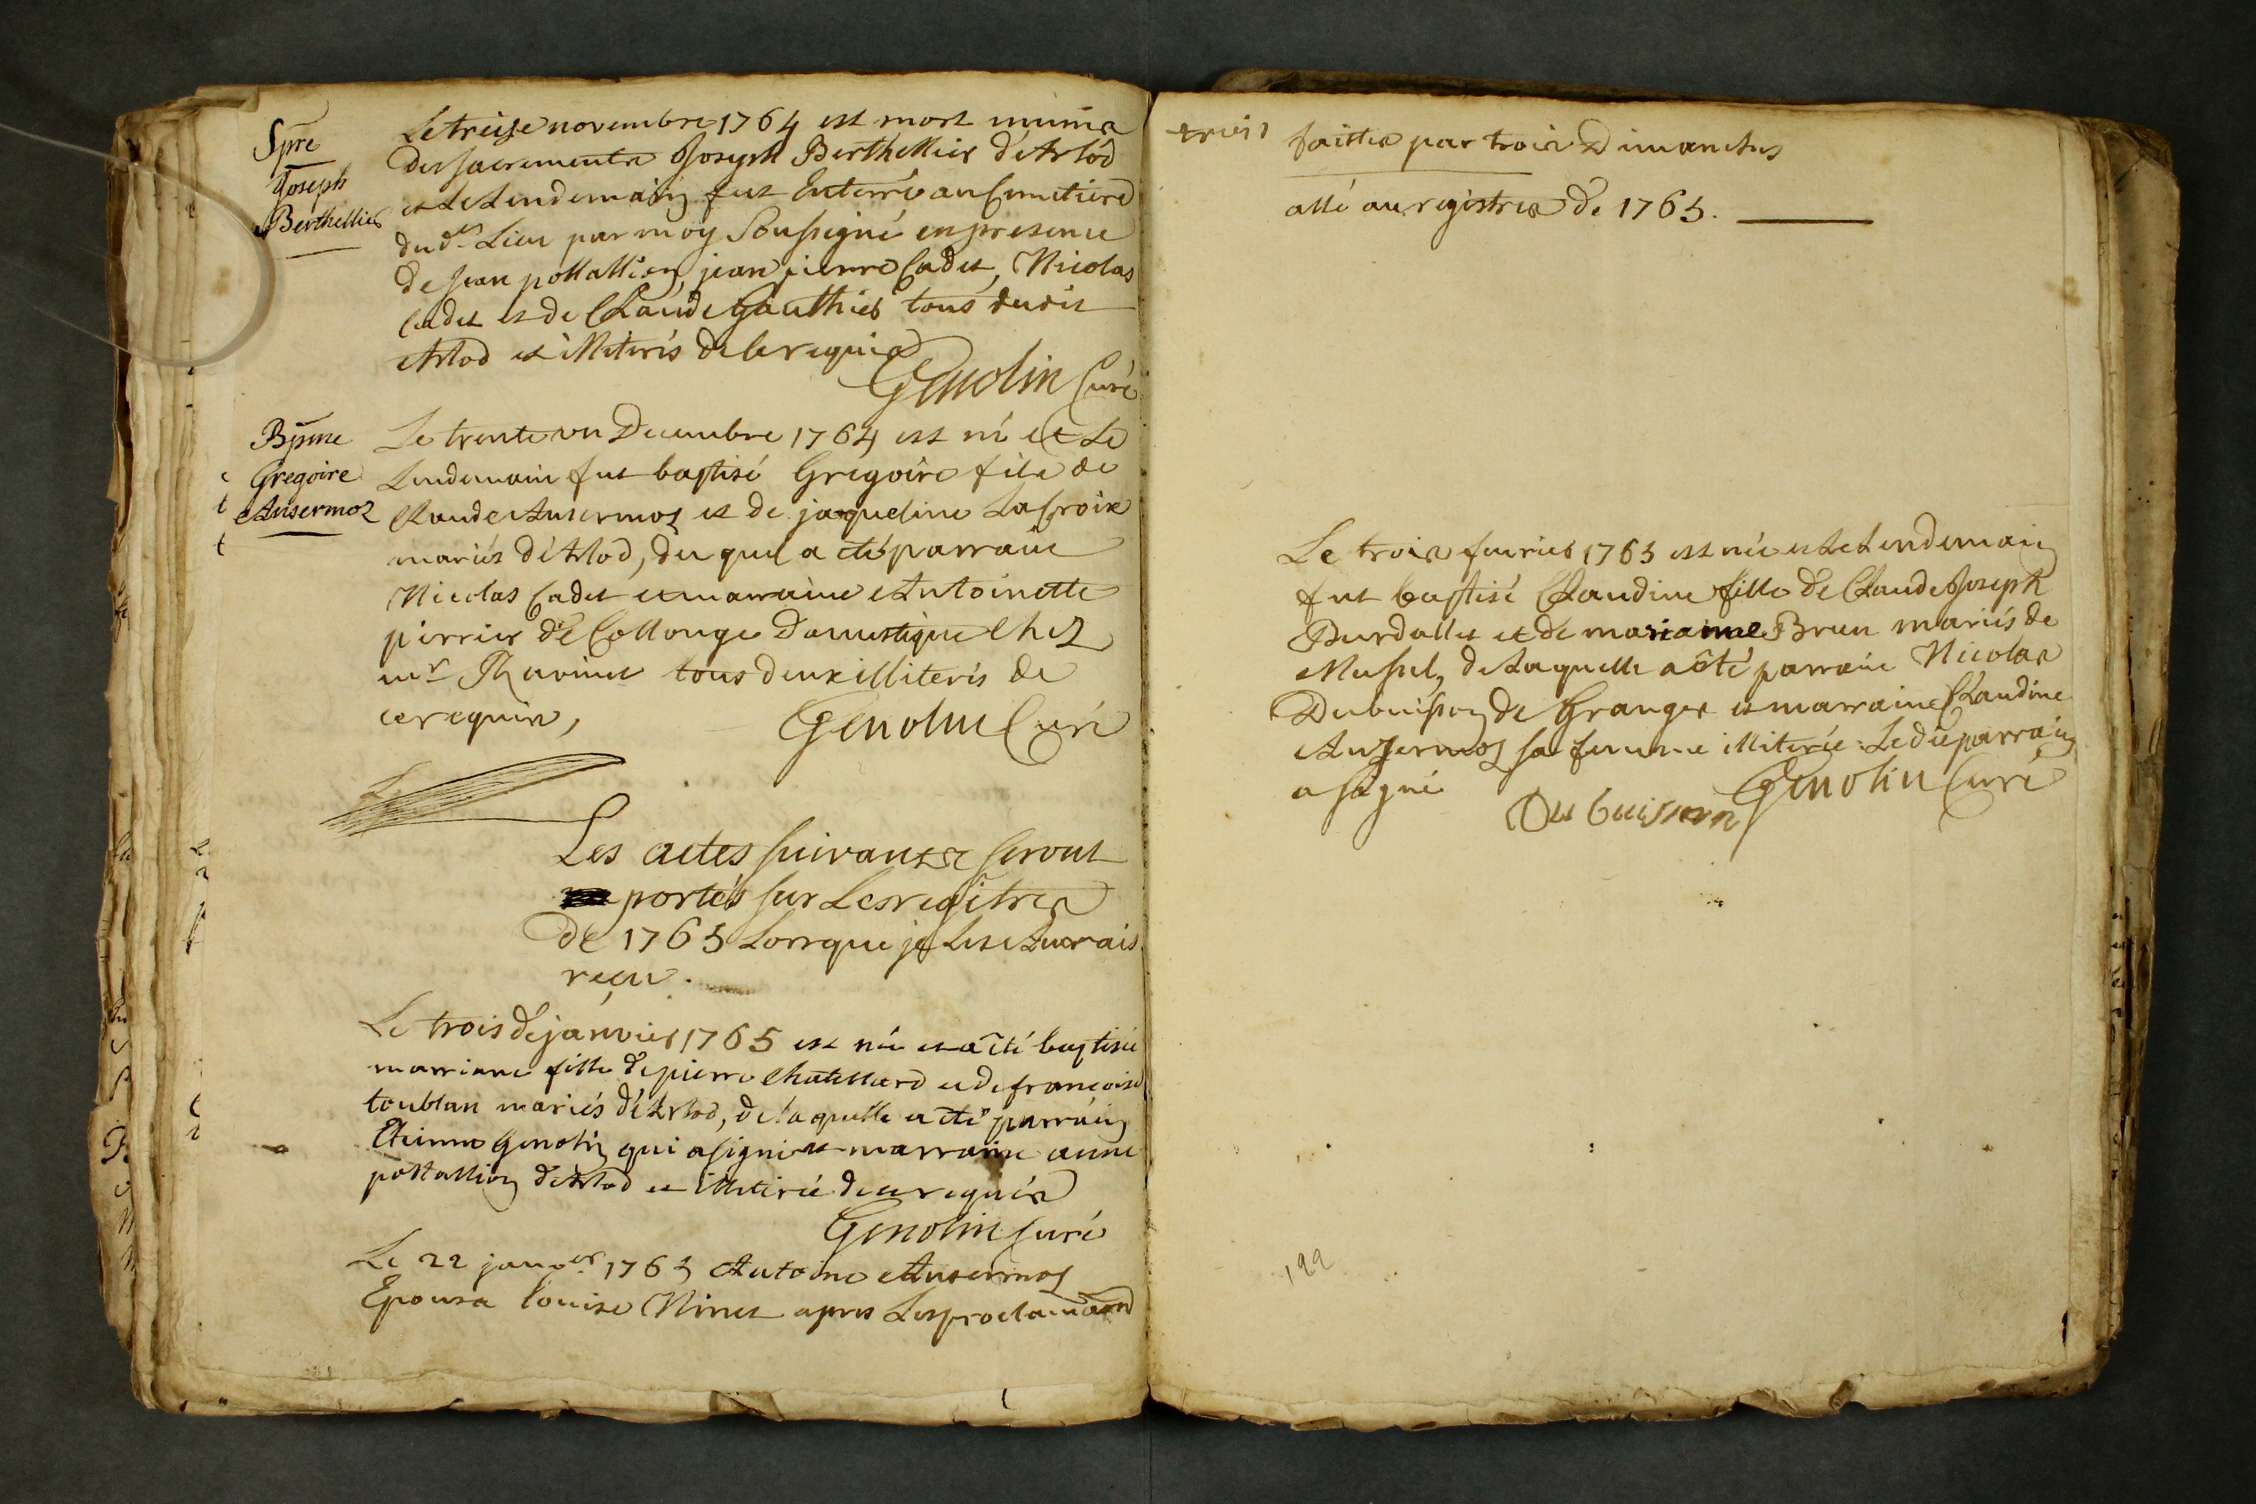 Spre
Joseph
Berthellier
Le treise novembre 1764 est mort munis
des sacrements Joseph Berthellier d'Arlod
et Le Lendemain fut Enterré au Cimetiere
du d. Lieu par moy Soussigné en presence
de jean pottallion, jean pierre Cadet, Nicolas
Cadet et de Claude Gauthier tous dudit
Arlod et illiterés de ce requis
Genolin Curé
Bpme
Gregoire
Ansermoz
Le trente un Decembre 1764 est né et Le
Lendemain fut baptisé Gregoire fils de
Claude Ansermoz et de jaqueline La Croix
mariés d'Arlod, du quel a été parrain
Nicolas Cadet et marraine Antoinette
perrier de Collonge domestique chez
mr Ravinet tous deux illiterés de
ce requis,
Genolin Curé
Les actes suivants seront
portés sur Les regitres
de 1765 Lorsque je Les Aurais
reçu.
Le trois de janvier 1765 est née et a été baptisée
marriane fille de pierre Chatellard et de françoise
toublan mariés d'Arlod, de laquelle a été parrain
Etienne Genolin qui a signé et marraine anne
pottallion d'Arlod et illiterée de ce requise
Genolin Curé
Le 22 janver 1765 Antoine Ansermoz
Epousa Louise Ninet apres Les proclamaons
trois
faittes par trois Dimanches
allé au registres de 1765.
Le trois fevrier 1765 est née et Le Lendemain
fut baptisé Claudine fille de Claude Joseph
Burdallet et de mariame Brun mariés de
Mussel, de Laquelle a été parrain Nicolas
Dubuisson de Granges et marraine Claudine
Ansermoz sa femme illiterée. Le dit parrain
a signé
Genolin Curé
Du buisson
199